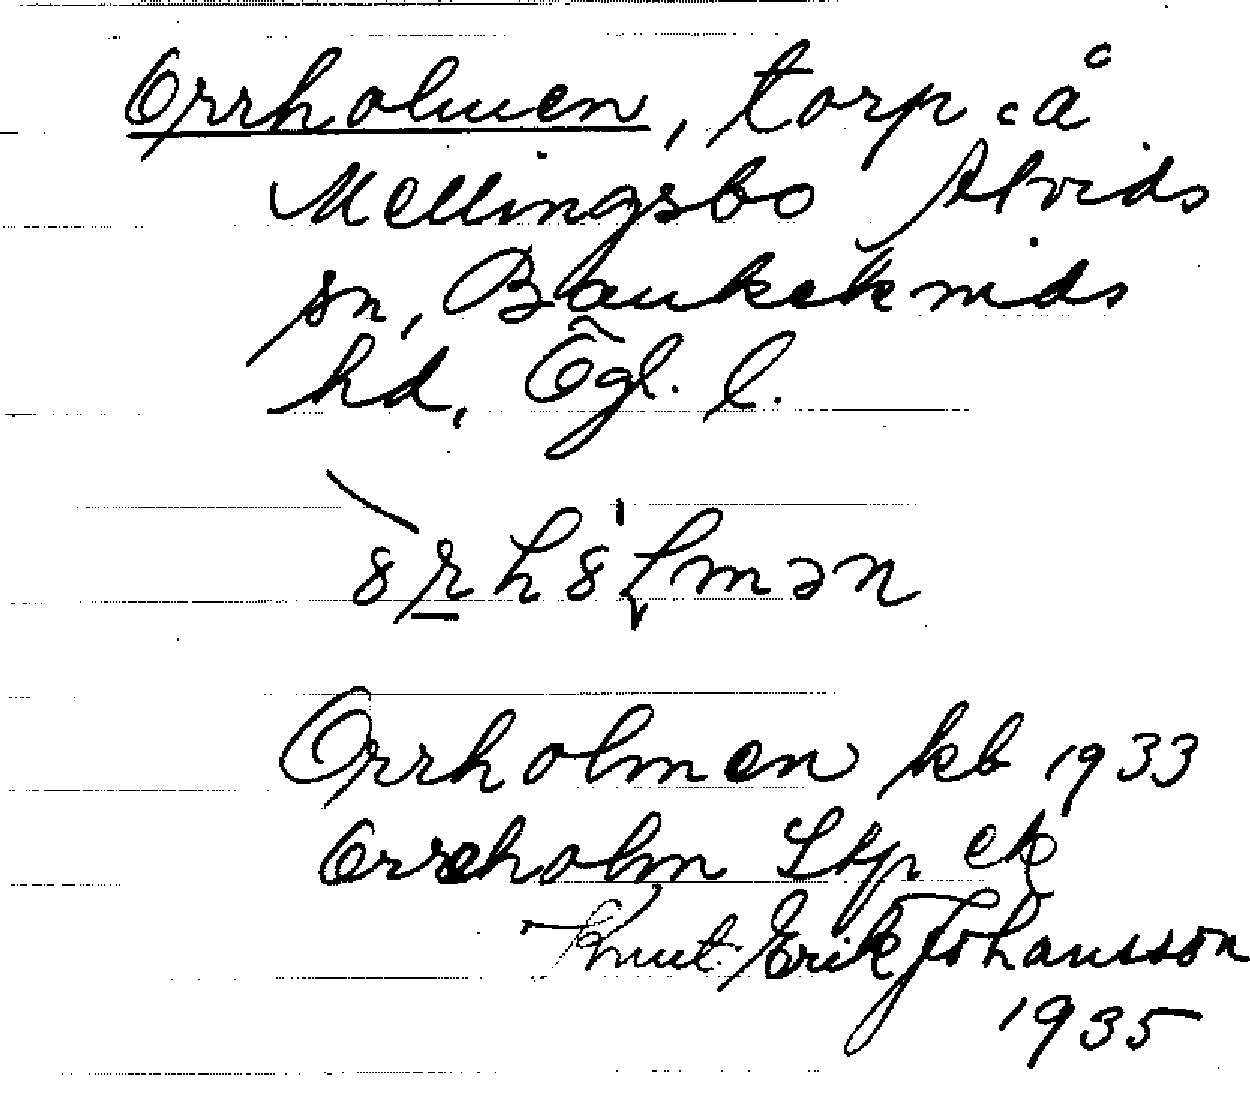 Orrholmen, torp å
Mellingsbo Atvids
sn, Bankekinds
hd, Ögl. l.
Orrholmen kb 1933
Orrholm Ekp ek
Knut Erik Johansson
1935